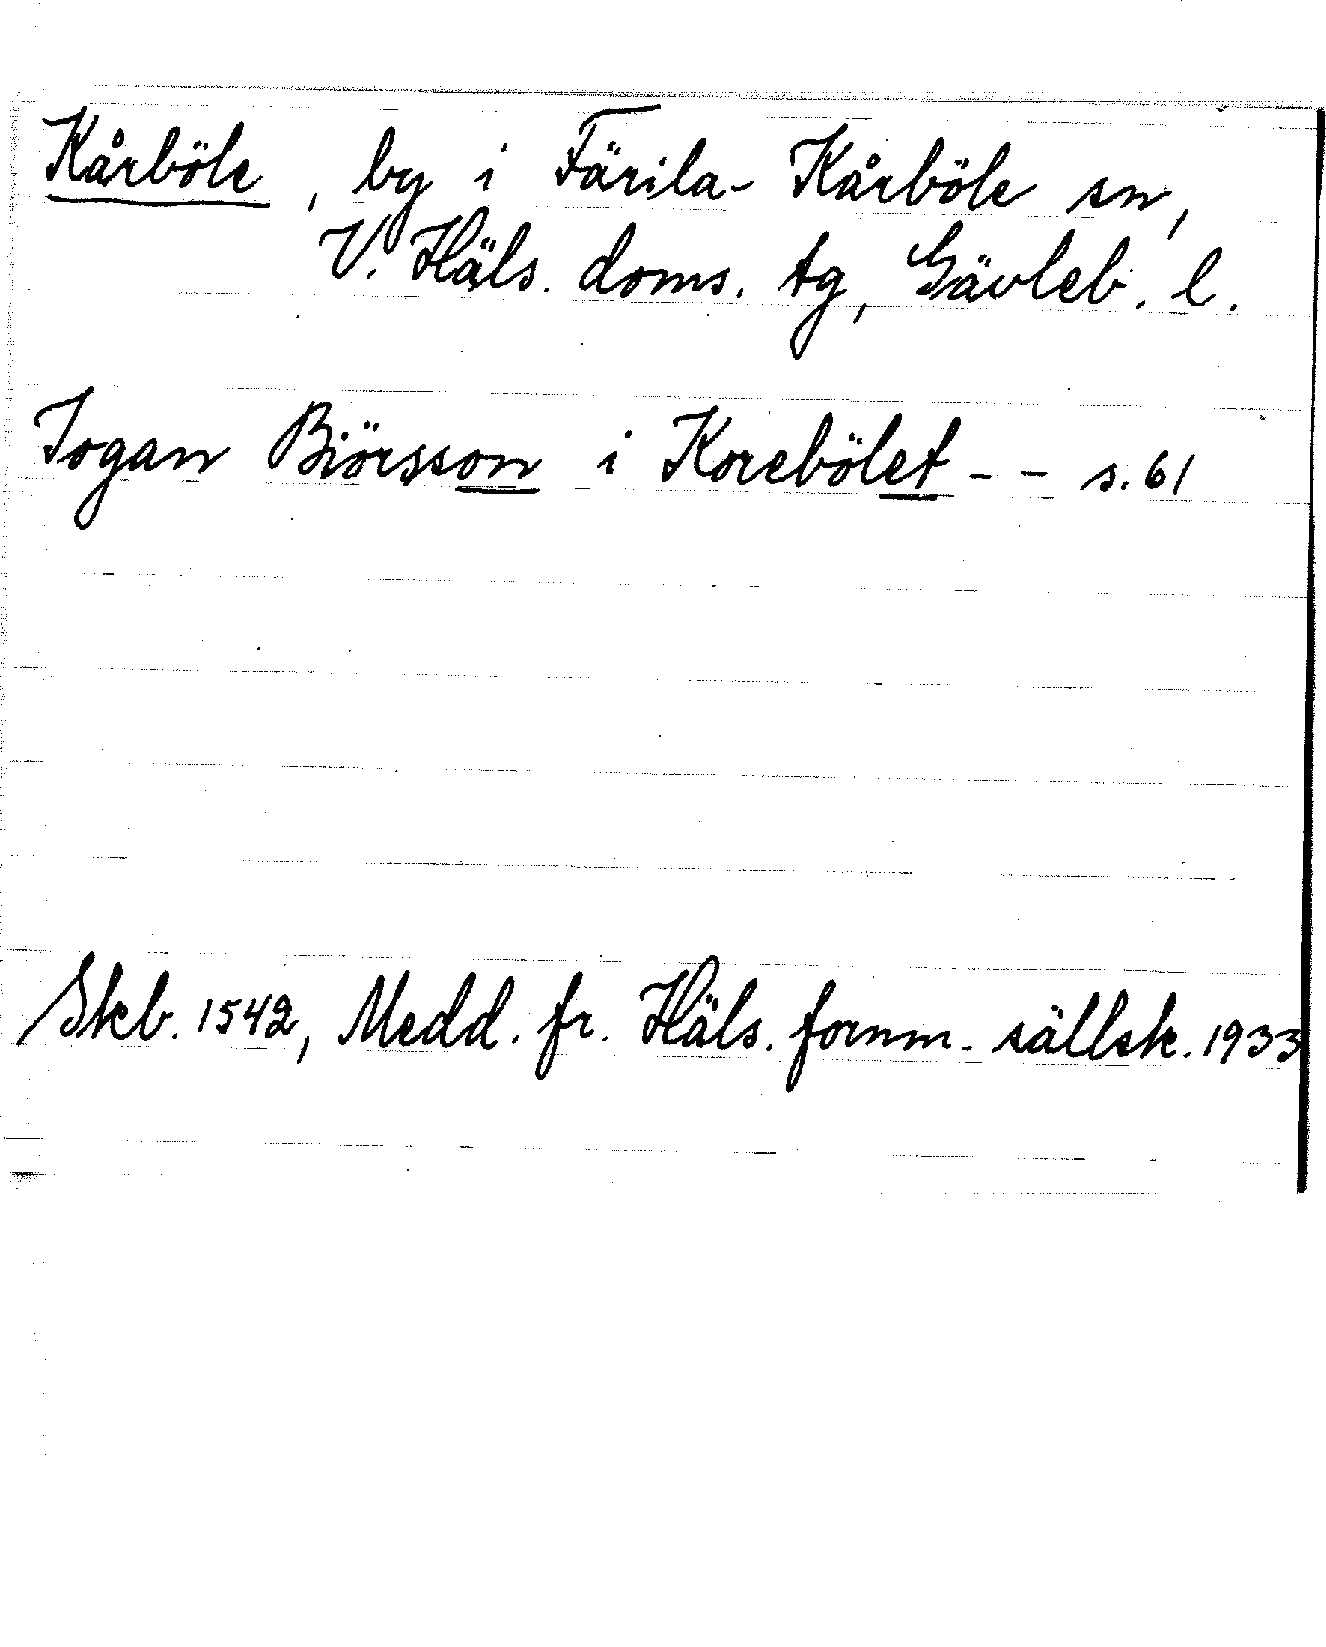 Kårböle, by i Färila-Kårböle sn,
V. Häls. doms. tg, Gävleb. l.
Jogan Biörsson i Korebölet -- s. 61
Skb. 1542, Medd. fr. Häls. fornm. sällsk. 1933